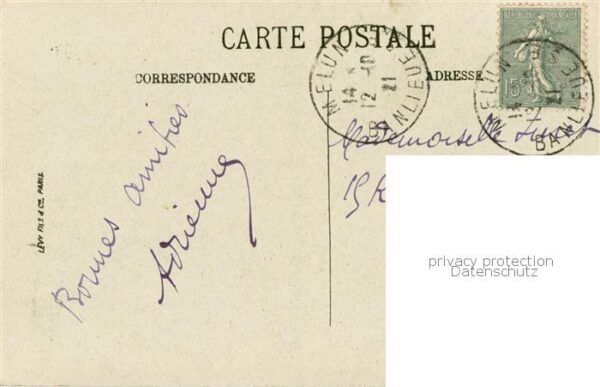 CARTE POSTALE
CORRESPONDANCE
ADRESSE
REPUBLIQUE FRANÇAISE
15c
MELUN
14 10
12 21
BANLIEUE
MELUN
BANLIEUE
Bonnes amitiés
Adrienne
Mademoiselle
15 R
LÉVY FILS & Cie, PARIS.
privacy protection
Datenschutz